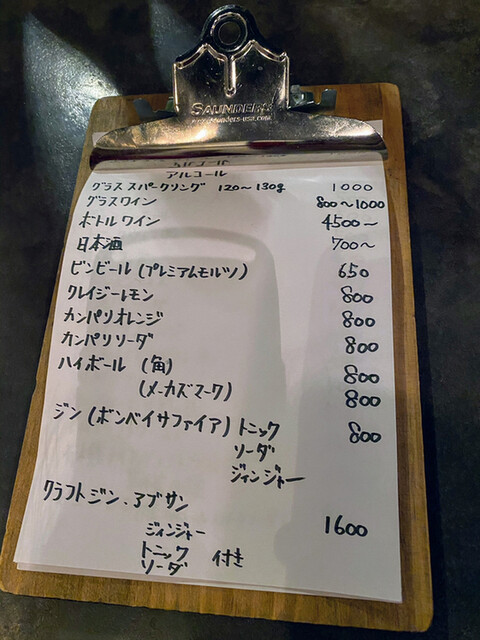 SAUNDERS
アルコール
グラス スパークリング 120〜130g 1000
グラスワイン 800〜1000
ボトルワイン 4500〜
日本酒 700〜
ビンビール (プレミアムモルツ) 650
クレイジーレモン 800
カンパリオレンジ 800
カンパリソーダ 800
ハイボール (角) 800
(メーカズマーク) 800
ジン (ボンベイサファイア) トニック 800
ソーダ
ジィンジャー
クラフトジン、アブサン
ジィンジャー 1600
トニック 付き
ソーダ